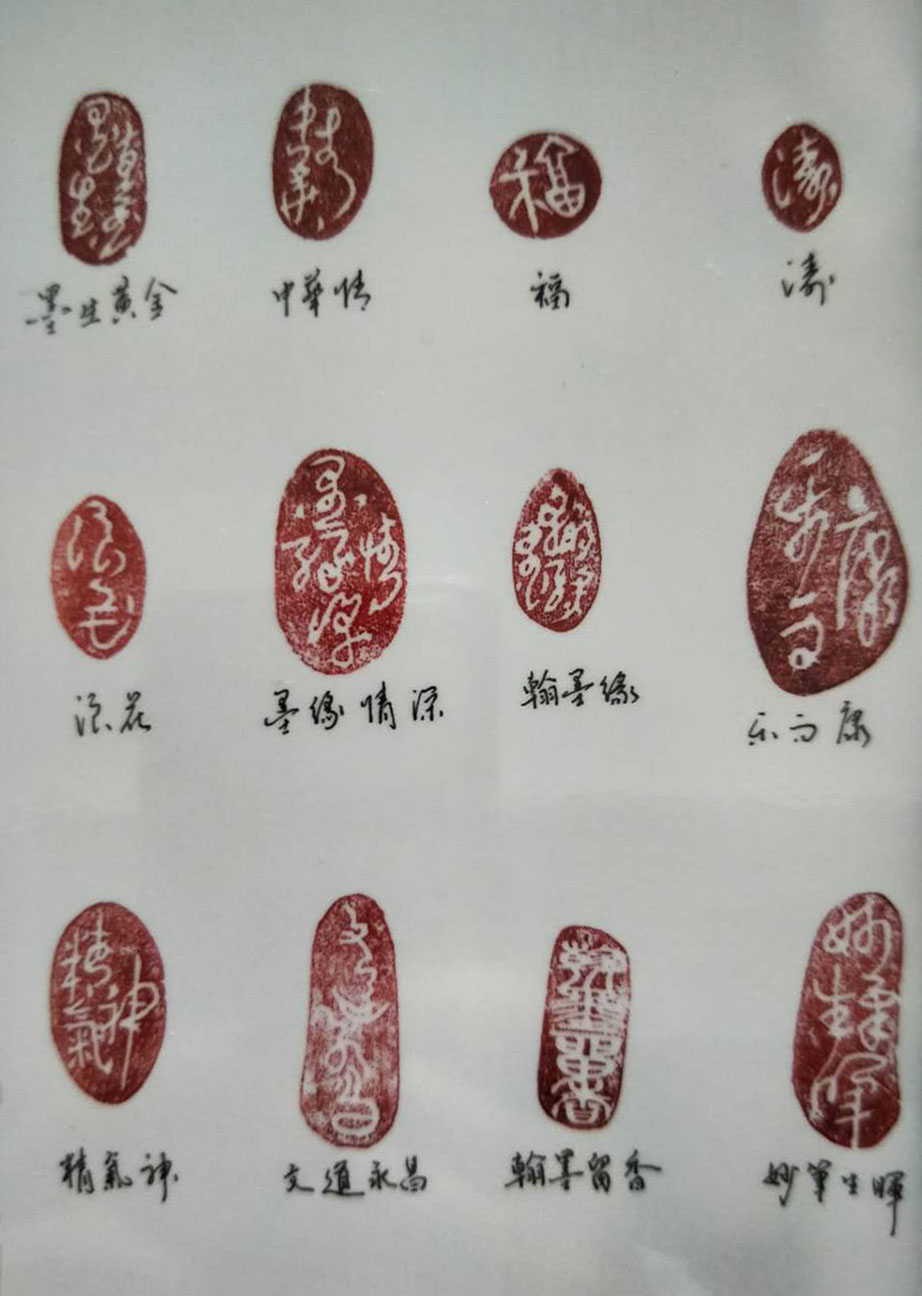 墨生黄金
中華情
福
涛
浪花
墨缘情深
翰墨缘
乐而康
精氣神
文道永昌
翰墨留香
妙筆生暉